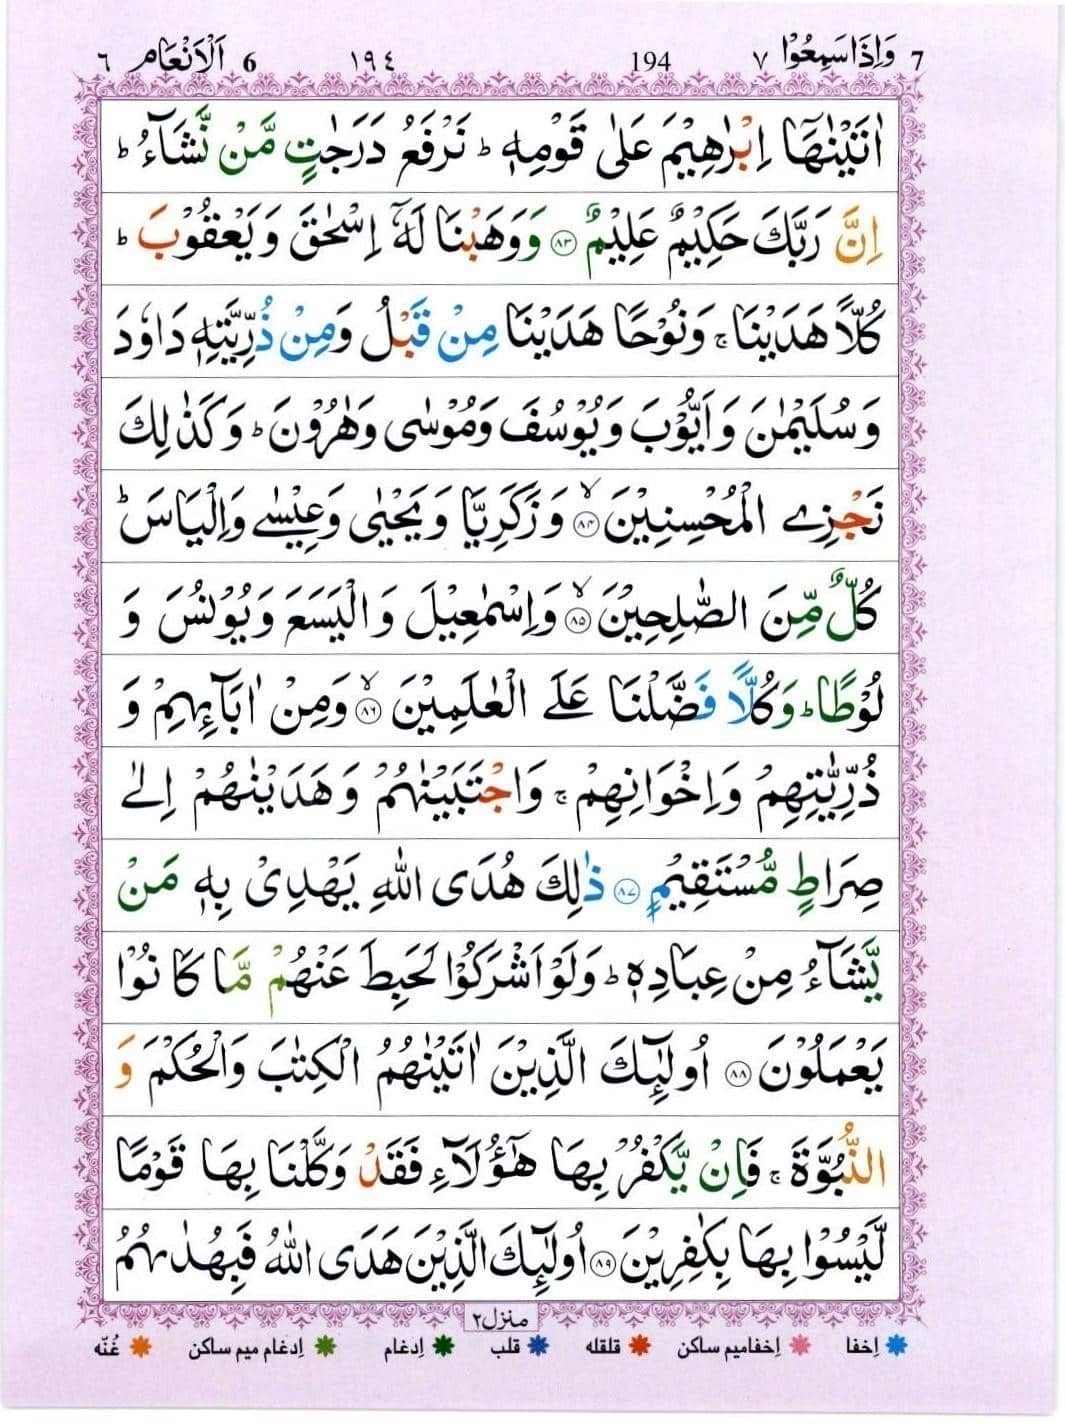 7 وَاِذَا سَمِعُوْا ٧ 194 ١٩٤ 6 اَلْاَنْعَام ٦
اٰتَيْنٰهَاۤ اِبْرٰهِيْمَ عَلٰى قَوْمِهٖ ؕ نَرْفَعُ دَرَجٰتٍ مَّنْ نَّشَآءُ ؕ
اِنَّ رَبَّكَ حَكِيْمٌ عَلِيْمٌ ۝٨٣ وَوَهَبْنَا لَهٗۤ اِسْحٰقَ وَيَعْقُوْبَ ؕ
كُلًّا هَدَيْنَا ۚ وَنُوْحًا هَدَيْنَا مِنْ قَبْلُ وَمِنْ ذُرِّيَّتِهٖ دَاوٗدَ
وَسُلَيْمٰنَ وَاَيُّوْبَ وَيُوْسُفَ وَمُوْسٰى وَهٰرُوْنَ ؕ وَكَذٰلِكَ
نَجْزِى الْمُحْسِنِيْنَ ۙ۝٨٤ وَزَكَرِيَّا وَيَحْيٰى وَعِيْسٰى وَاِلْيَاسَ ؕ
كُلٌّ مِّنَ الصّٰلِحِيْنَ ۙ۝٨٥ وَاِسْمٰعِيْلَ وَالْيَسَعَ وَيُوْنُسَ وَ
لُوْطًا ؕ وَكُلًّا فَضَّلْنَا عَلَى الْعٰلَمِيْنَ ۙ۝٨٦ وَمِنْ اٰبَآئِهِمْ وَ
ذُرِّيّٰتِهِمْ وَاِخْوَانِهِمْ ۚ وَاجْتَبَيْنٰهُمْ وَهَدَيْنٰهُمْ اِلٰى
صِرَاطٍ مُّسْتَقِيْمٍ ۝٨٧ ذٰلِكَ هُدَى اللّٰهِ يَهْدِىْ بِهٖ مَنْ
يَّشَآءُ مِنْ عِبَادِهٖ ؕ وَلَوْ اَشْرَكُوْا لَحَبِطَ عَنْهُمْ مَّا كَانُوْا
يَعْمَلُوْنَ ۝٨٨ اُولٰٓئِكَ الَّذِيْنَ اٰتَيْنٰهُمُ الْكِتٰبَ وَالْحُكْمَ وَ
النُّبُوَّةَ ۚ فَاِنْ يَّكْفُرْ بِهَا هٰٓؤُلَآءِ فَقَدْ وَكَّلْنَا بِهَا قَوْمًا
لَّيْسُوْا بِهَا بِكٰفِرِيْنَ ۝٨٩ اُولٰٓئِكَ الَّذِيْنَ هَدَى اللّٰهُ فَبِهُدٰىهُمُ
منزل٢
اِخفا اِخفامیم ساکن قلقله قلب اِدغام اِدغام میم ساکن غُنّه